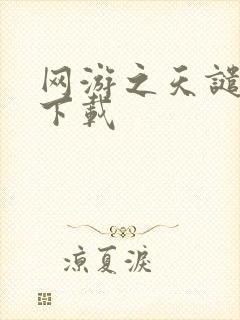 网游之天谴
下载
凉夏淚